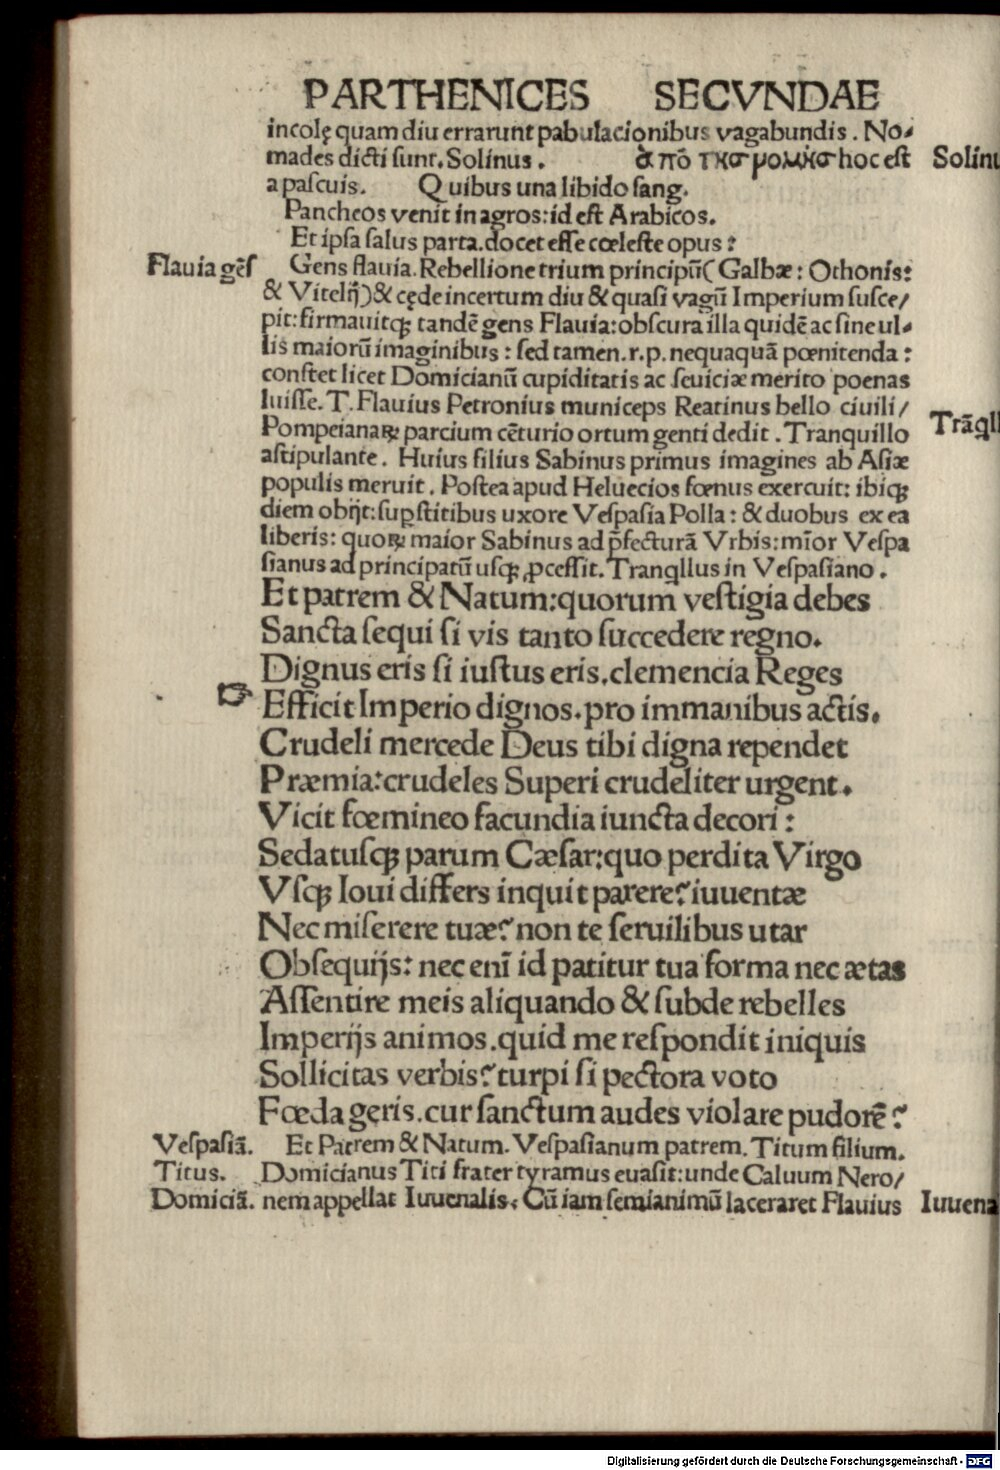 PARTHENICES SECVNDAE
incolę quam diu errarunt pabulacionibus vagabundis. No-
mades dicti sunt. Solinus. ἀπὸ τησ νομῆσ hoc est
Solinu
a pascuis. Quibus una libido sang.
Pancheos venit in agros: id est Arabicos.
Et ipsa salus parta. docet esse cœleste opus:
Flauia gēs
Gens flauia. Rebellione trium principū( Galbæ: Othonis:
& Vitelij) & cęde incertum diu & quasi vagū Imperium susce/
pit: firmauitꝗ tandē gens Flauia: obscura illa quidē ac sine ul-
lis maiorū imaginibus: sed tamen. r.p. nequaquā pœnitenda:
constet licet Domicianū cupiditatis ac seuiciæ merito poenas
luisse. T. Flauius Petronius municeps Reatinus bello ciuili/
Pompeianaꝝ parcium cēturio ortum genti dedit. Tranquillo
Trāqll
astipulante. Huius filius Sabinus primus imagines ab Asiæ
populis meruit. Postea apud Heluecios fœnus exercuit: ibiqꝫ
diem obijt: suꝑstitibus uxore Vespasia Polla: & duobus ex ea
liberis: quoꝝ maior Sabinus ad p̄fecturā Vrbis: mīor Vespa
sianus ad principatū usqꝫ ꝓcessit. Tranqllus in Vespasiano.
Et patrem & Natum: quorum vestigia debes
Sancta sequi si vis tanto succedere regno.
Dignus eris si iustus eris. clemencia Reges
☞ Efficit Imperio dignos. pro immanibus actis.
Crudeli mercede Deus tibi digna rependet
Præmia: crudeles Superi crudeliter urgent.
Vicit fœmineo facundia iuncta decori:
Sedatusqꝫ parum Cæsar: quo perdita Virgo
Vsqꝫ Ioui differs inquit parere? iuuentæ
Nec miserere tuæ? non te seruilibus utar
Obsequijs: nec enī id patitur tua forma nec ætas
Assentire meis aliquando & subde rebelles
Imperijs animos. quid me respondit iniquis
Sollicitas verbis? turpi si pectora voto
Fœda geris. cur sanctum audes violare pudorē?
Vespasiā.
Et Patrem & Natum. Vespasianum patrem. Titum filium.
Titus.
Domicianus Titi frater tyramus euasit: unde Caluum Nero/
Domiciā.
nem appellat Iuuenalis. Cū iam semianimū laceraret Flauius
Iuuena
Digitalisierung gefördert durch die Deutsche Forschungsgemeinschaft - DFG